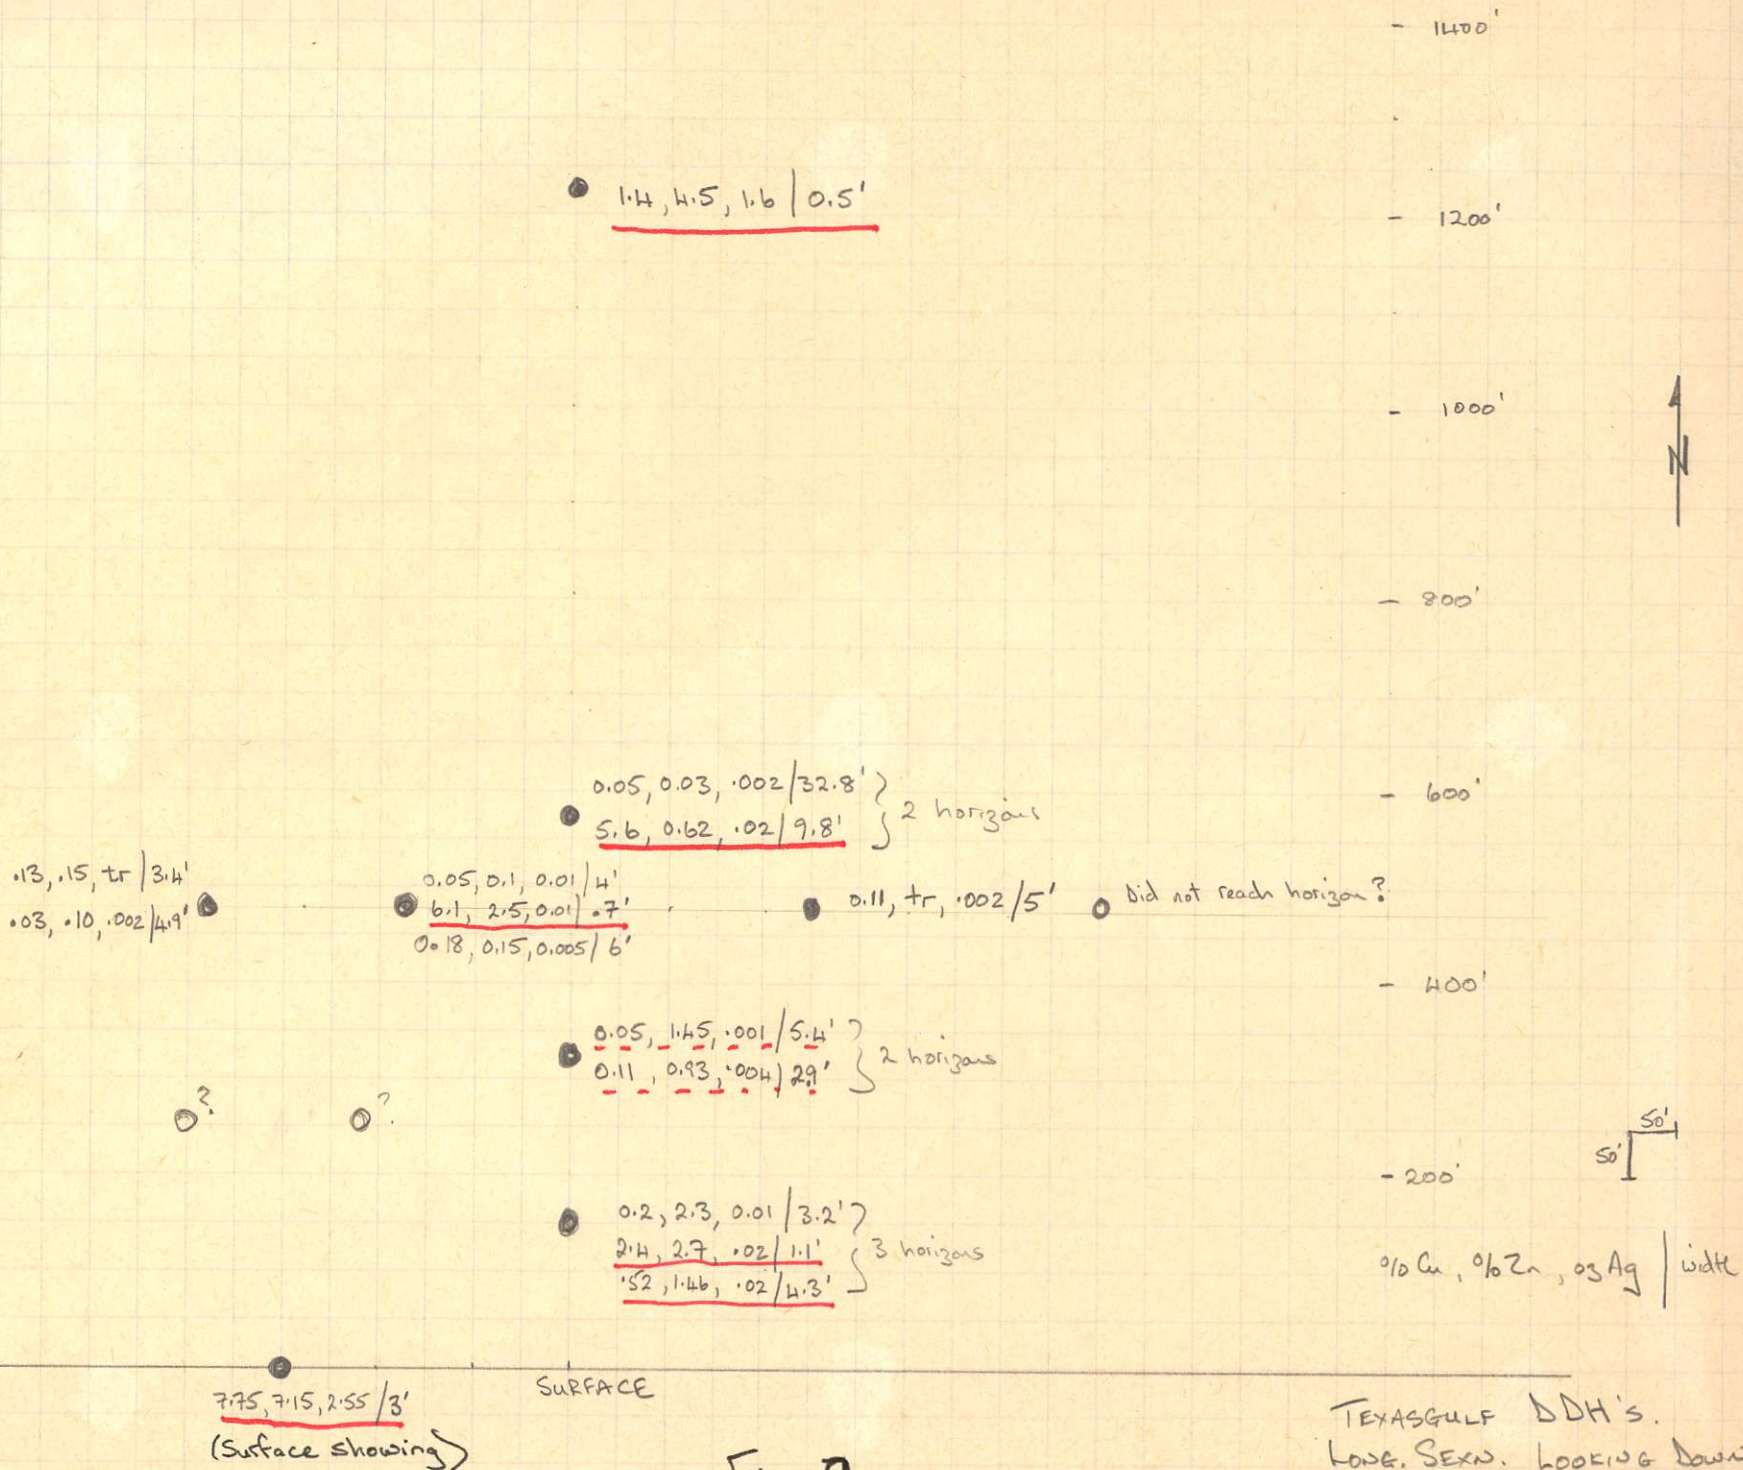 - 1400'
1.4, 4.5, 1.6 | 0.5'
- 1200'
- 1000'
N
- 800'
0.05, 0.03, .002/32.8'
5.6, 0.62, .02/9.8'
2 horizons
- 600'
.13, .15, tr/3.4'
.03, .10, .002/4.9'
0.05, 0.1, 0.01/4'
6.1, 2.5, 0.01/.7'
0.18, 0.15, 0.005/6'
0.11, tr, .002/5'
Did not reach horizon?
- 400'
0.05, 1.45, .001/5.4'
0.11, 0.93, .004/29'
2 horizons
?
?
50'
50'
- 200'
0.2, 2.3, 0.01/3.2'
2.4, 2.7, .02/1.1'
.52, 1.46, .02/4.3'
3 horizons
% Cu, % Zn, oz Ag | width
SURFACE
7.75, 7.15, 2.55/3'
(Surface showing)
TEXASGULF DDH's.
LONG. SEXN. LOOKING DOWN